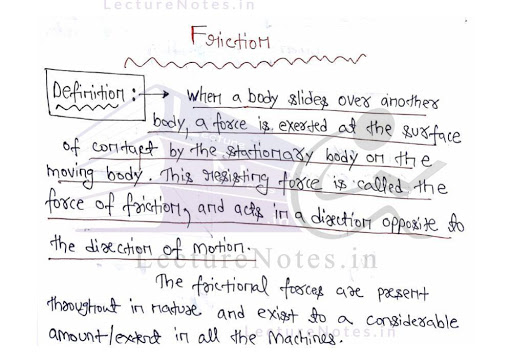 LectureNotes.in
Friction
Definition :→ When a body slides over another
body, a force is exerted at the surface
of contact by the stationary body on the
moving body. This resisting force is called the
force of friction, and acts in a direction opposite to
the direction of motion.
LectureNotes.in
The frictional forces are present
throughout in nature and exist to a considerable
amount/extent in all the machines.
LectureNotes.in